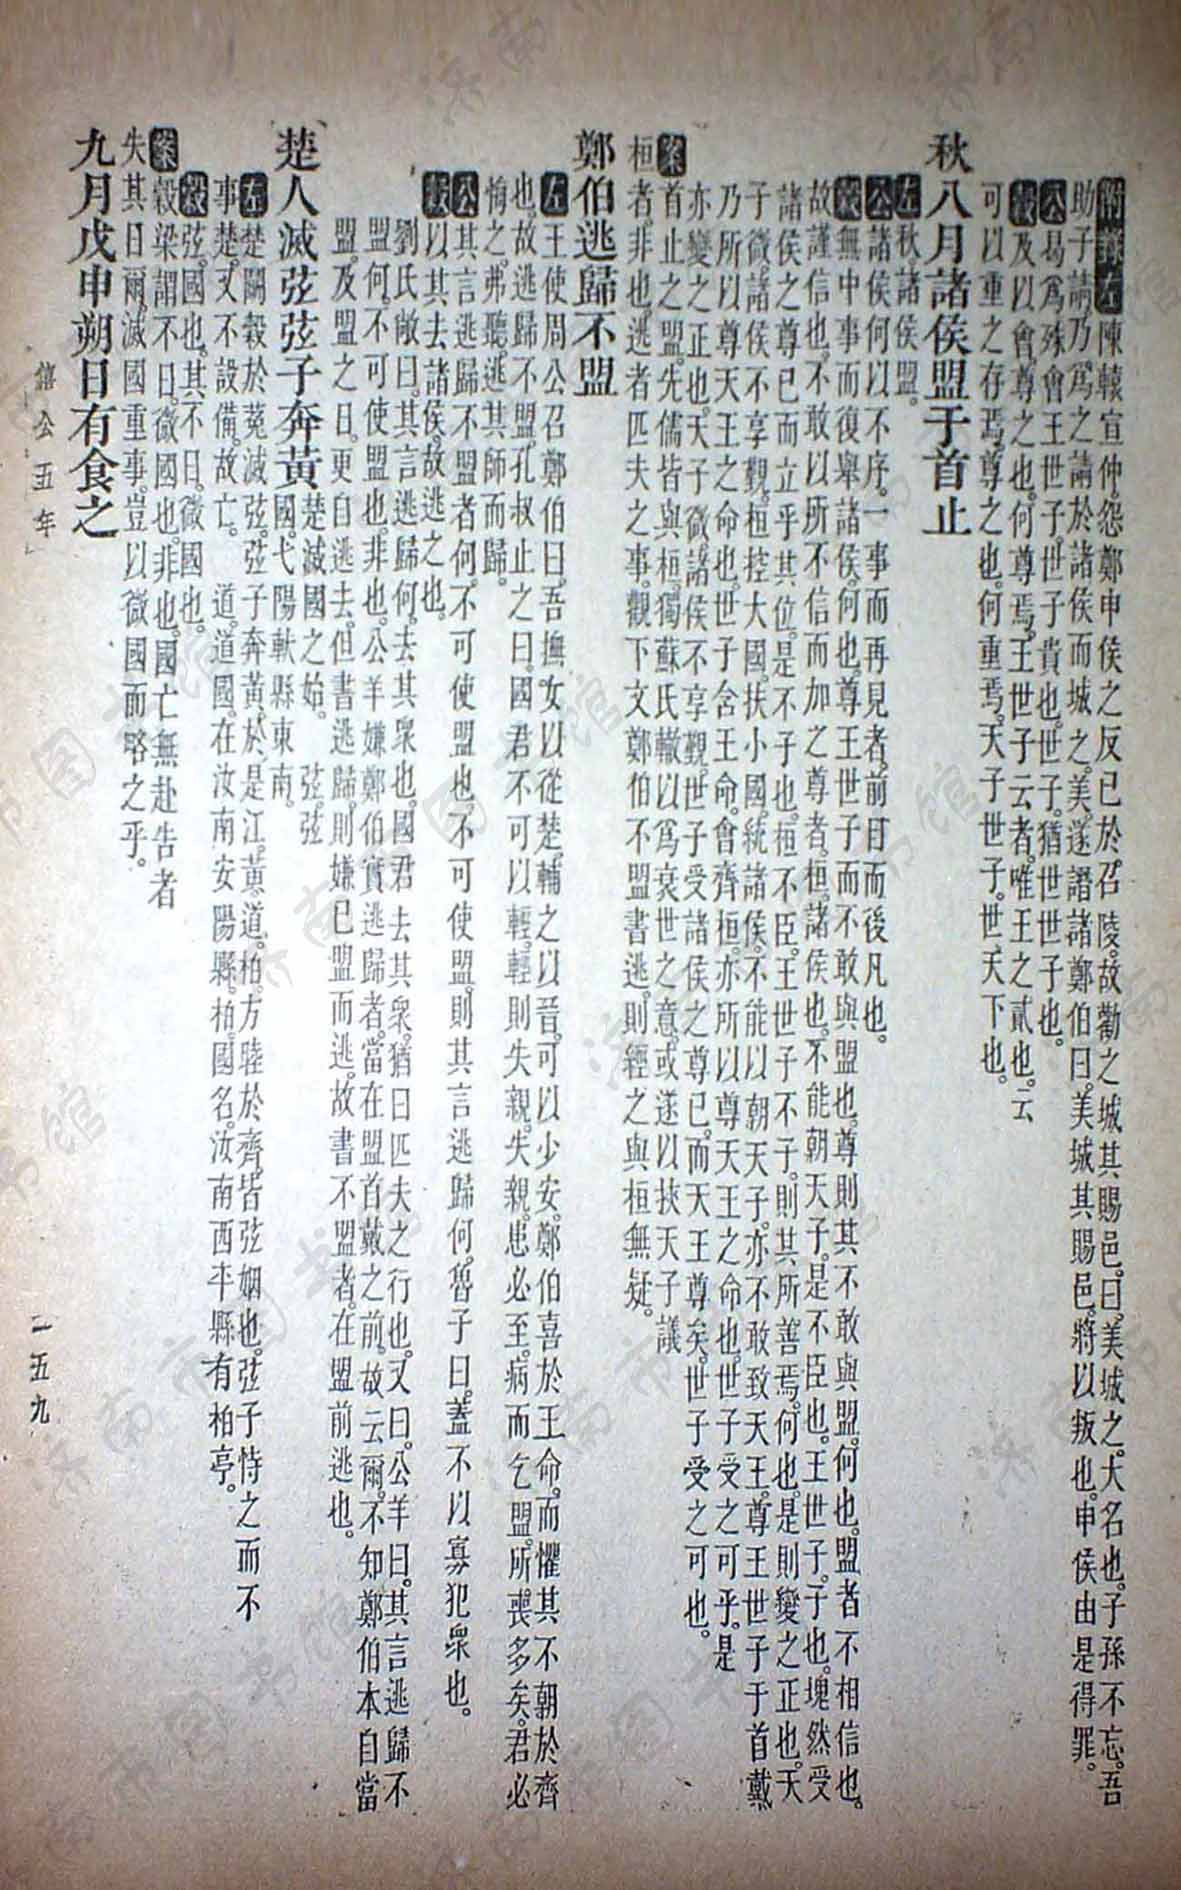 附錄左陳轅宣仲怨鄭申侯之反己於召陵。故勸之城其賜邑。曰。美城之。大名也。子孫不忘。吾
助子請。乃爲之請於諸侯而城之。美。遂譖諸鄭伯曰。美城其賜邑。將以叛也。申侯由是得罪。
公曷爲殊會王世子。世子貴也。世子。猶世世子也。
穀及以會。尊之也。何尊焉。王世子云者。唯王之貳也。云
可以重之存焉。尊之也。何重焉。天子世子。世天下也。
秋八月諸侯盟于首止
左秋諸侯盟。
公諸侯何以不序。一事而再見者。前目而後凡也。
穀無中事而復舉諸侯。何也。尊王世子而不敢與盟也。尊則其不敢與盟。何也。盟者不相信也。
故謹信也。不敢以所不信而加之尊者。桓。諸侯也。不能朝天子。是不臣也。王世子。子也。塊然受
諸侯之尊己而立乎其位。是不子也。桓不臣。王世子不子。則其所善焉。何也。是則變之正也。天
子微。諸侯不享覲。桓控大國。扶小國。統諸侯。不能以朝天子。亦不敢致天王。尊王世子于首戴
乃所以尊天王之命也。世子含王命。會齊桓。亦所以尊天王之命也。世子受之可乎。是
亦變之正也。天子微。諸侯不享覲。世子受諸侯之尊己。而天王尊矣。世子受之可也。
案首止之盟。先儒皆與桓。獨蘇氏轍以爲衰世之意。或遂以挾天子議
桓者。非也。逃者匹夫之事。觀下文鄭伯不盟書逃。則經之與桓無疑。
鄭伯逃歸不盟
左王使周公召鄭伯曰。吾撫女以從楚。輔之以晉。可以少安。鄭伯喜於王命。而懼其不朝於齊
也。故逃歸不盟。孔叔止之曰。國君不可以輕。輕則失親。失親。患必至。病而乞盟。所喪多矣。君必
悔之。弗聽。逃其師而歸。
公其言逃歸不盟者何。不可使盟也。不可使盟。則其言逃歸何。魯子曰。蓋不以寡犯衆也。
穀以其去諸侯。故逃之也。
劉氏敞曰。其言逃歸何。去其衆也。國君去其衆。猶曰匹夫之行也。又曰。公羊曰。其言逃歸不
盟何。不可使盟也。非也。公羊嫌鄭伯實逃歸者。當在盟首戴之前。故云爾。不知鄭伯本自當
盟。及盟之日。更自逃去。但書逃歸。則嫌已盟而逃。故書不盟者。在盟前逃也。
楚人滅弦弦子奔黃 楚滅國之始。弦。弦
國。弋陽軑縣東南。
左楚鬭穀於菟滅弦。弦子奔黃。於是江。黃。道。柏。方睦於齊。皆弦姻也。弦子恃之而不
事楚。又不設備。故亡。 道。道國。在汝南安陽縣。柏。國名。汝南西平縣有柏亭。
穀弦。國也。其不日。微國也。
案穀梁謂不日。微國也。非也。國亡無赴告者
失其日爾。滅國重事。豈以微國而略之乎。
九月戊申朔日有食之
僖公五年
一五九